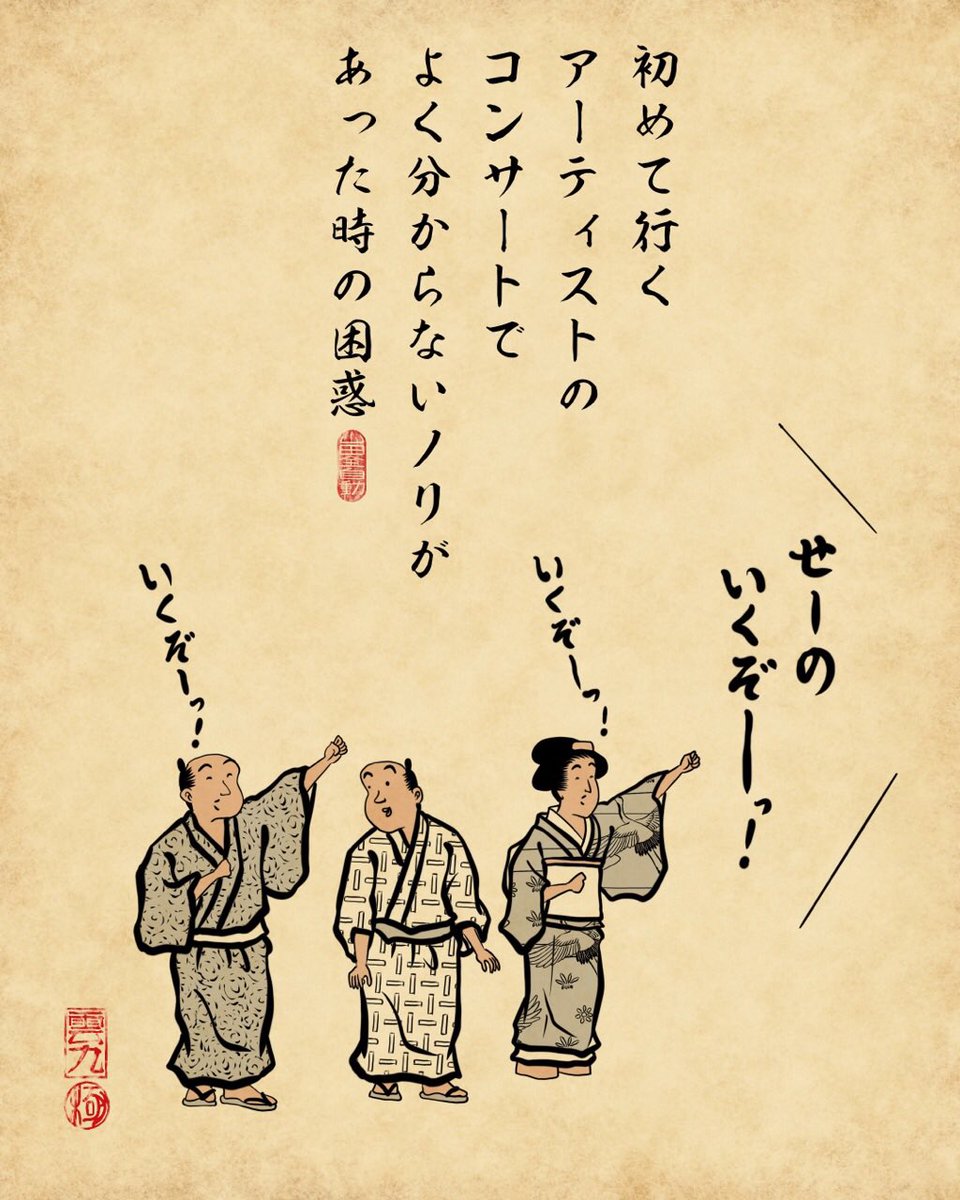 初めて行く
アーティストの
コンサートで
よく分からないノリが
あった時の困惑
せーの
いくぞーっ!
いくぞーっ!
いくぞーっ!